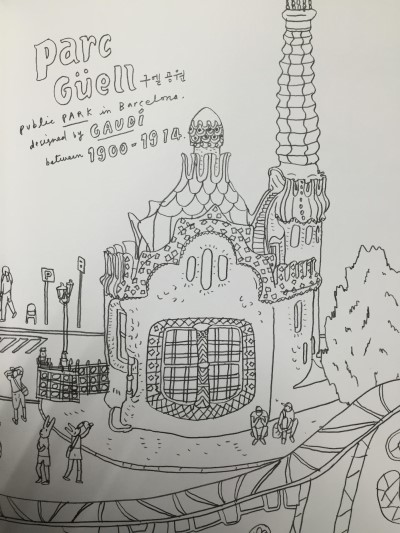 Parc
Güell 구엘 공원
public PARK in Barcelona.
designed by GAUDÍ
between 1900-1914.
P